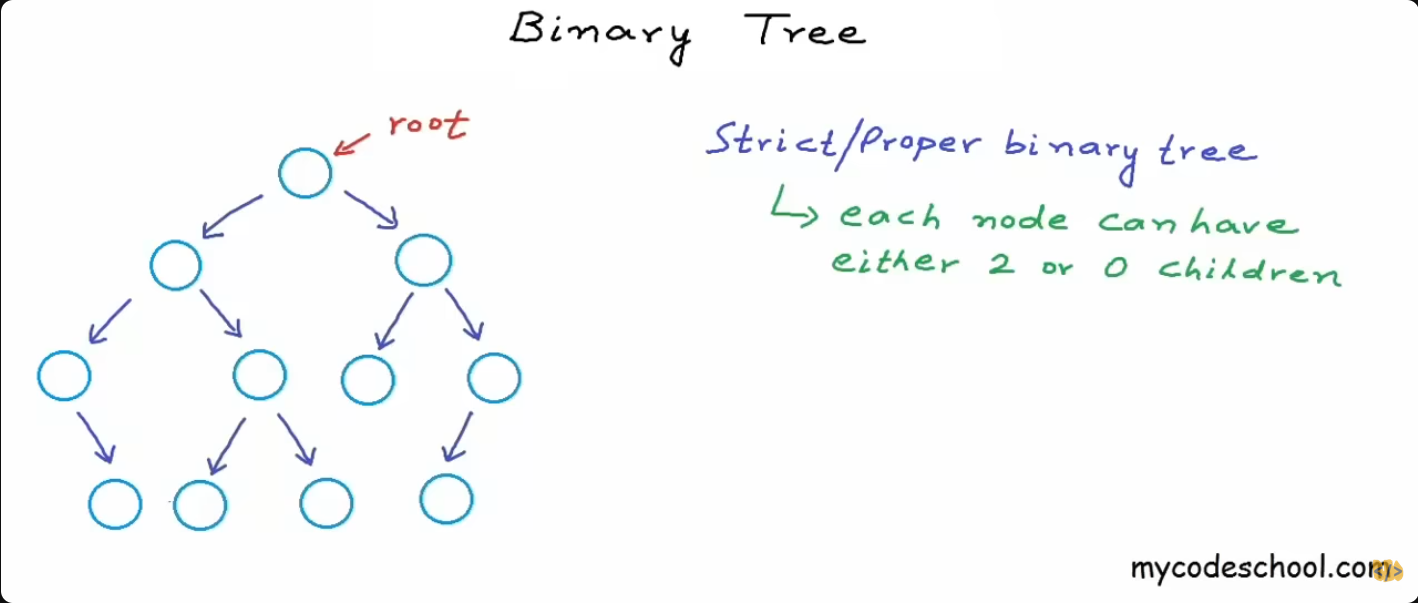 Binary Tree
root
Strict/Proper binary tree
each node can have
either 2 or 0 children
mycodeschool.com